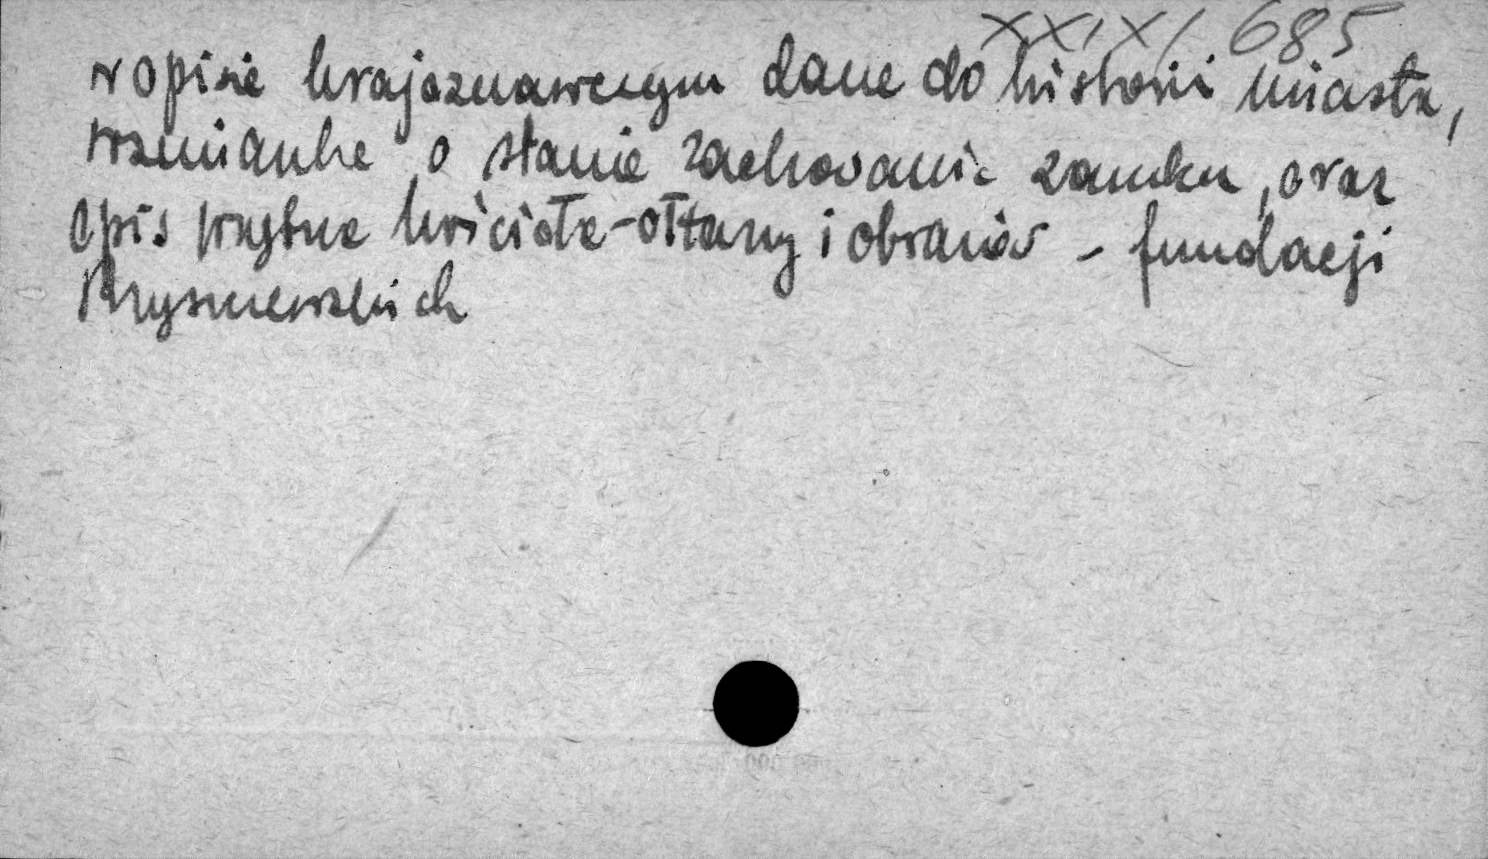 XXIX/685
w opisie krajoznawczym dane do historii miasta,
wzmianka o stanie zachowania zamku, oraz
opis wnętrza kościoła - ołtarzy i obrazów - fundacji